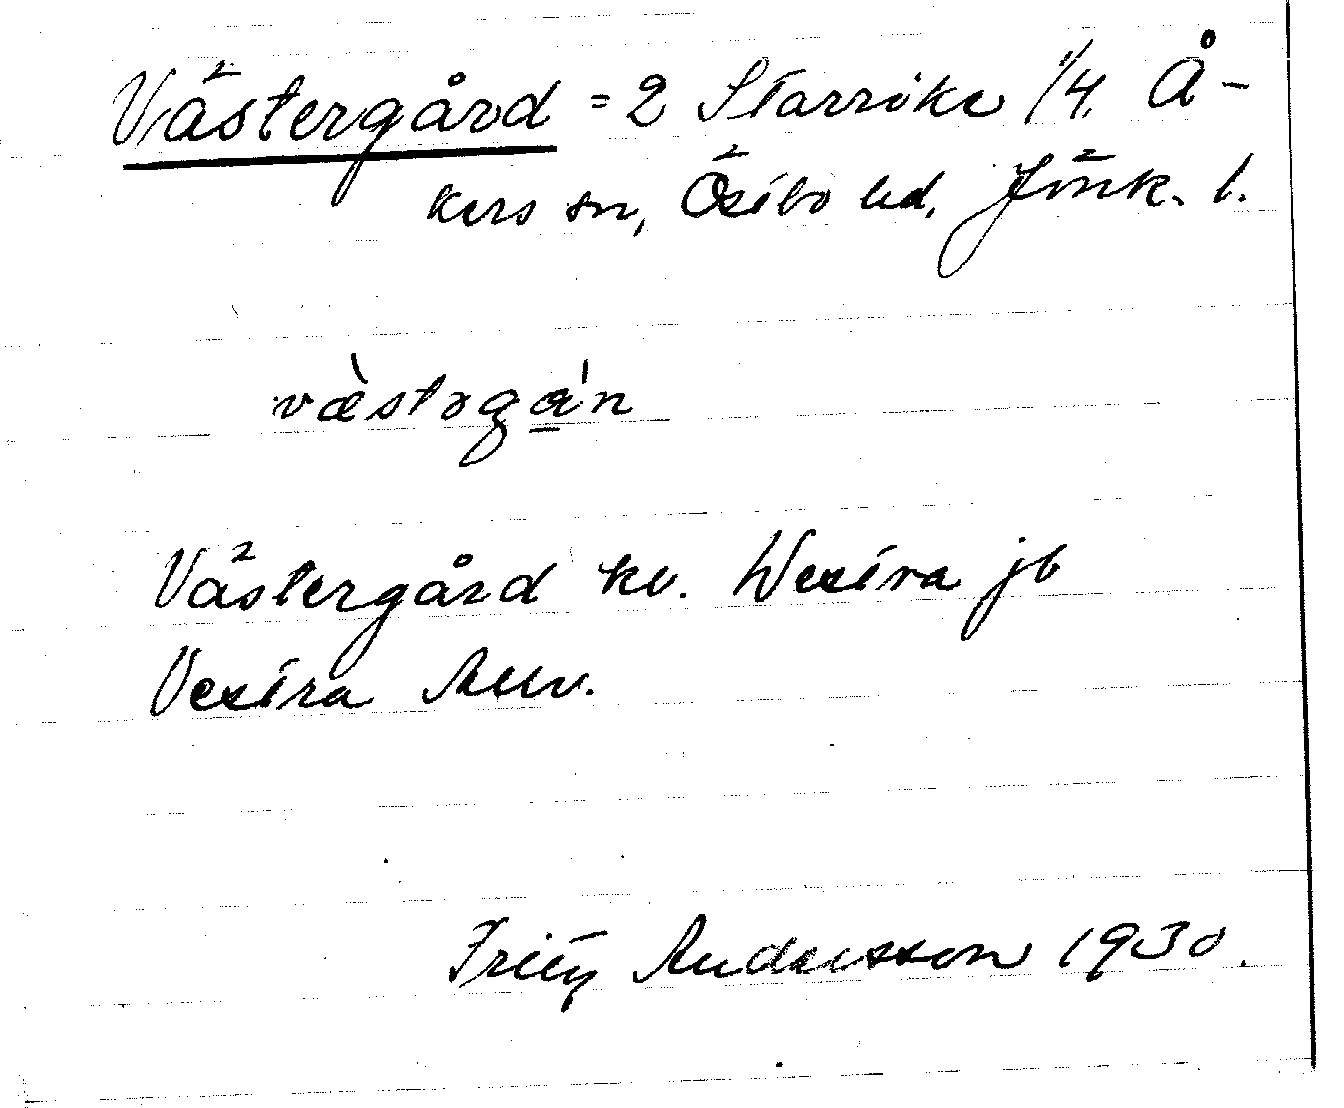 Västergård = 2 Starrike 1/4. Å-
kers sn, Östbo hd, Jönk. l.
væ̀stəgá̱n
Västergård kv. Westra jb
Vestra Muv.
Fritz Andersson 1930.